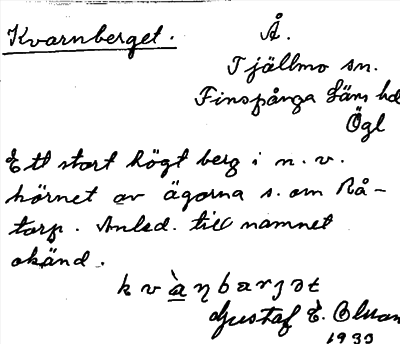 Kvarnberget.
Å.
Tjällmo sn.
Finspånga läns hd
Ögl
Ett stort högt berg i n. v.
hörnet av ägorna s. om Rå-
torp. Anled. till namnet
okänd.
Gustaf E.